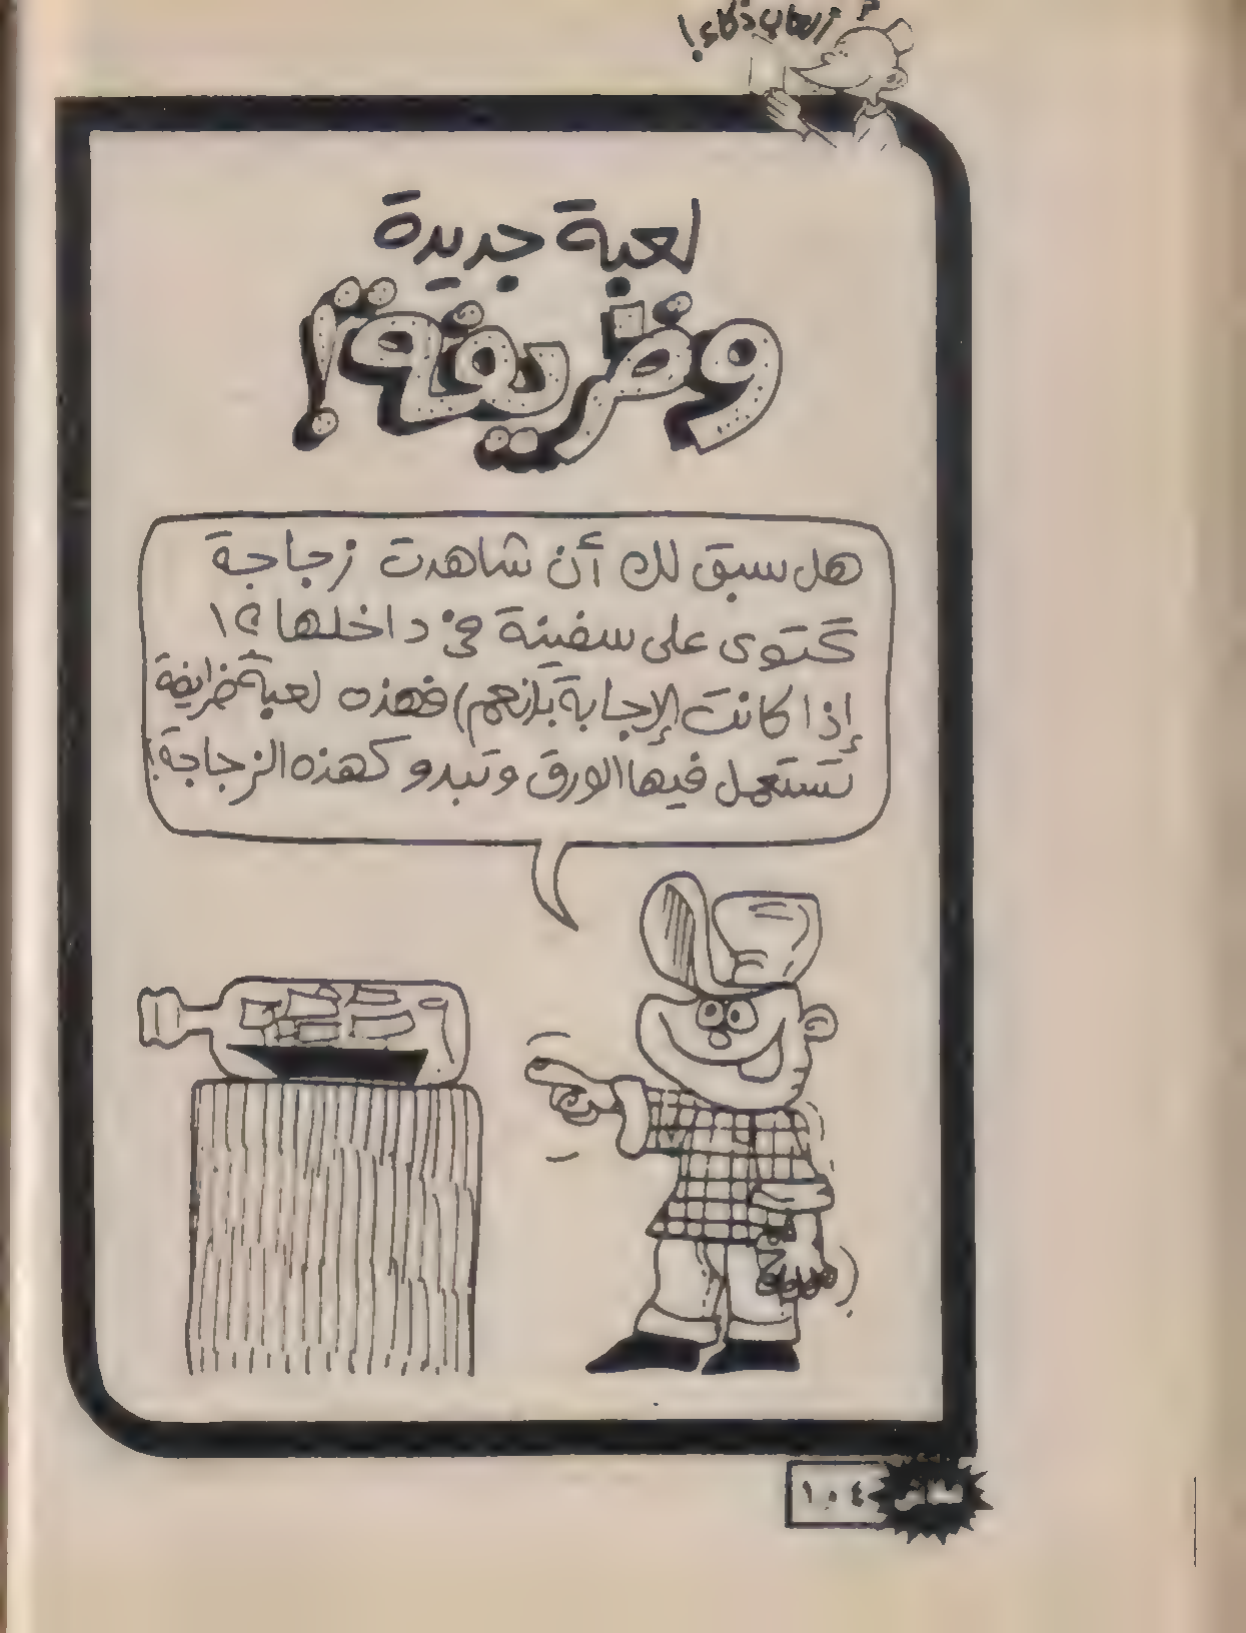 ألعاب ذكاء!
لعبة جديدة
وظريفة!
هل سبق لك أن شاهدت زجاجة
تحتوى على سفينة في داخلها؟!
إذا كانت الإجابة بـ(نعم) فهذه لعبة ظريفة
تستعمل فيها الورق وتبدو كهذه الزجاجة!
١٠٤